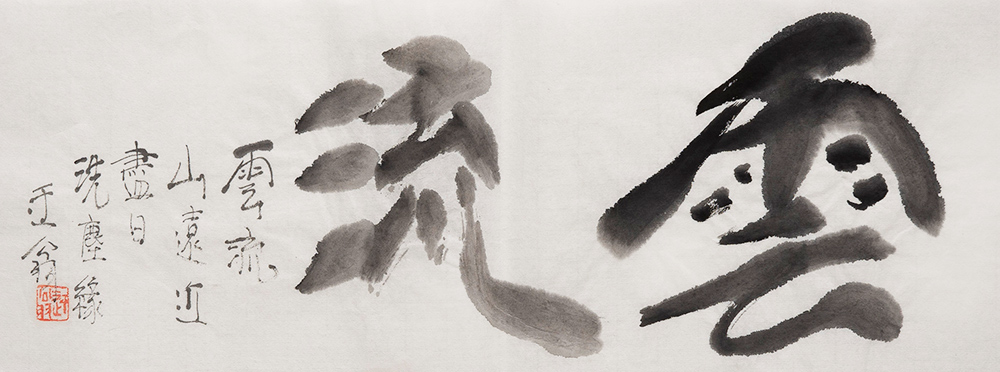 雲流
雲流
山遠近
盡日
洗塵緣
王翁